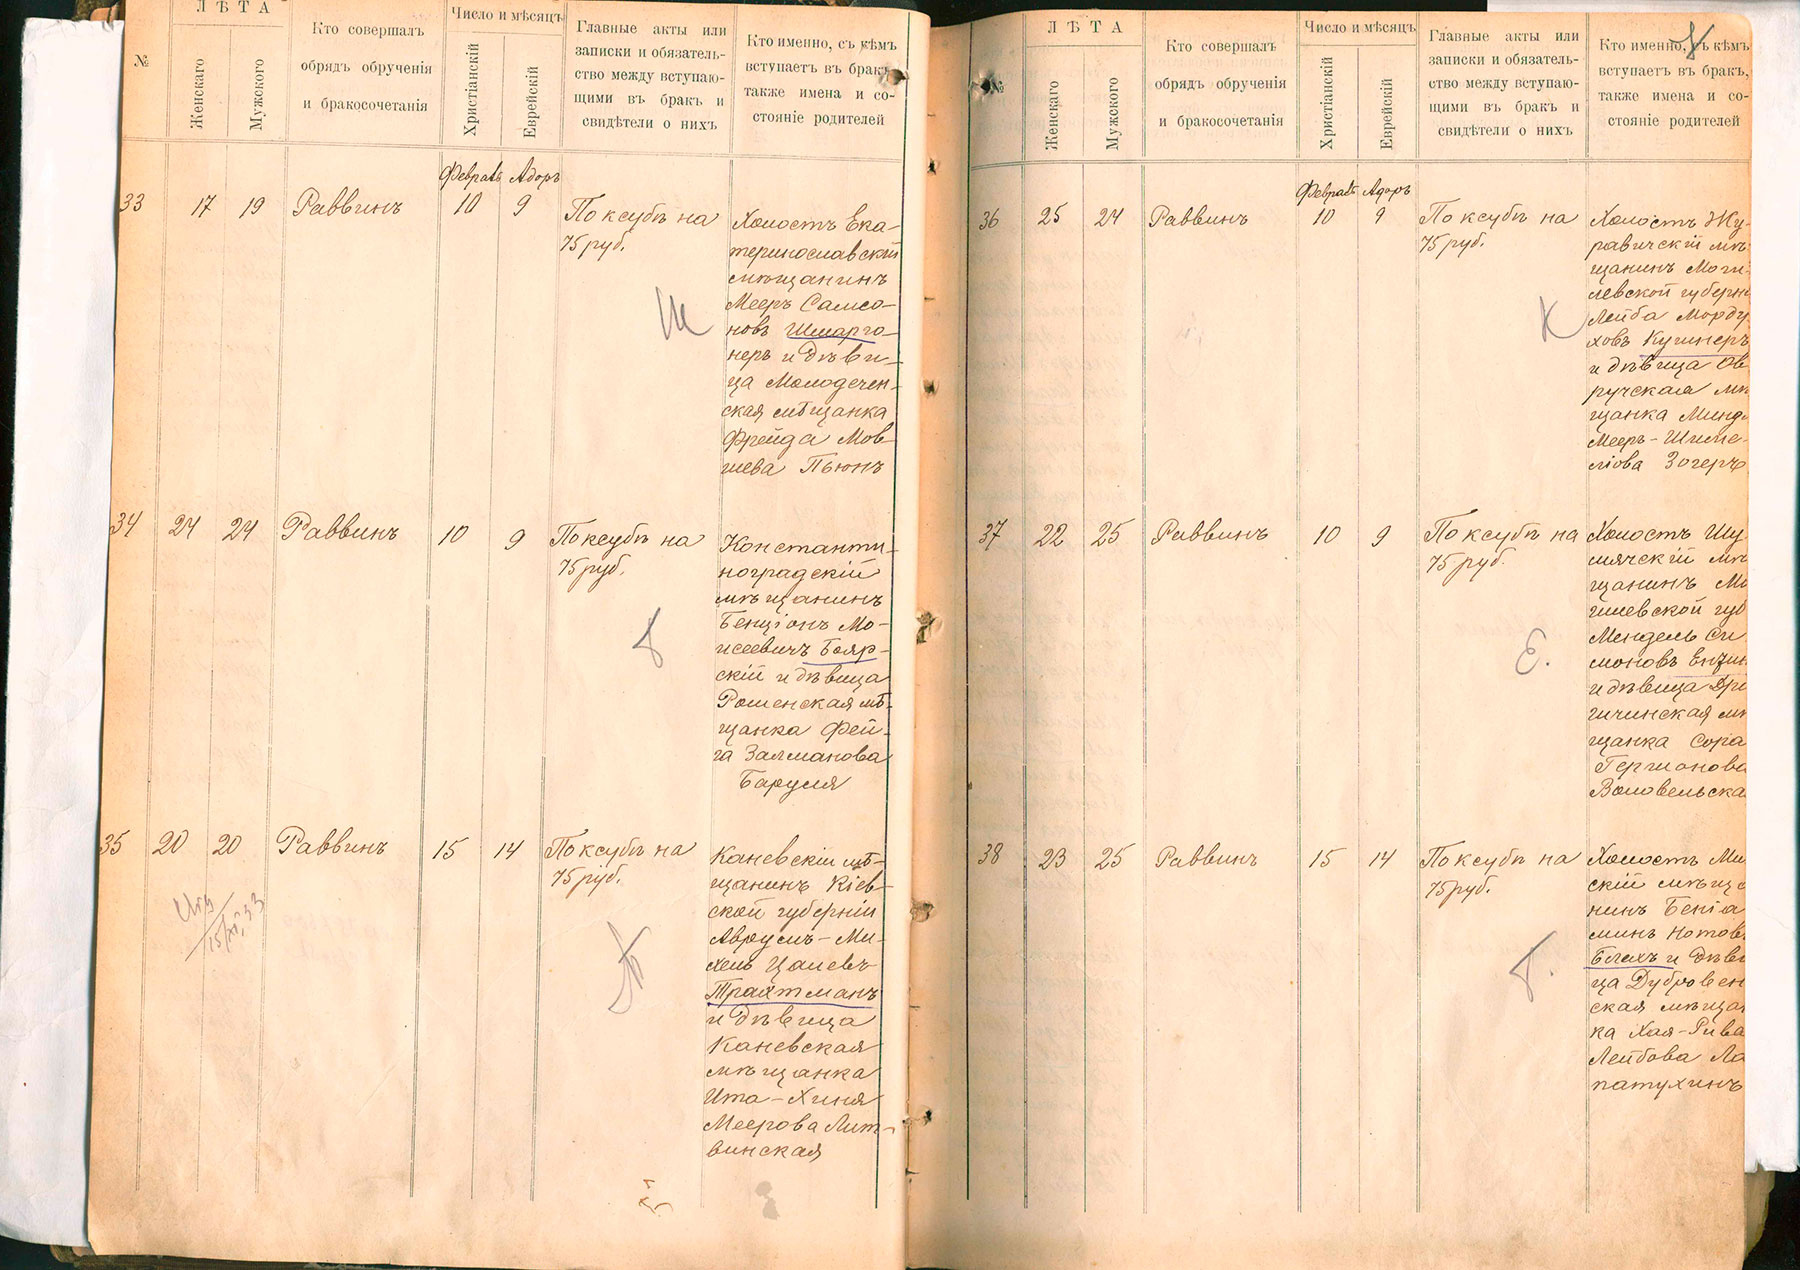 №
ЛѢТА
Женскаго
Мужского
Кто совершалъ
обрядъ обрученія
и бракосочетанія
Число и мѣсяцъ
Христіанскій
Еврейскій
Главные акты или
записки и обязатель-
ство между вступаю-
щими въ бракъ и
свидѣтели о нихъ
Кто именно, съ кѣмъ
вступаетъ въ бракъ,
также имена и со-
стояніе родителей
Февраль Адоръ
33 17 19 Раввинъ 10 9
По ксубѣ на
75 руб.
Холостъ Ека-
теринославскій
мѣщанинъ
Мееръ Самсо-
новъ Шмарго-
неръ и дѣви-
ца Молодечен-
ская мѣщанка
Фрейда Мов-
шева Пьюнъ
Ш
34 24 24 Раввинъ 10 9
По ксубѣ на
75 руб.
Константи-
ноградскій
мѣщанинъ
Бенціонъ Мо-
исеевичъ Бояр-
скій и дѣвица
Роменская мѣ-
щанка Фей-
га Залманова
Баруля
Б
35 20 20 Раввинъ 15 14
По ксубѣ на
75 руб.
Каневскій мѣ-
щанинъ Кіев-
ской губерніи
Аврумъ-Ми-
хель Цалевъ
Трайтманъ
и дѣвица
Каневская
мѣщанка
Ита-Хиня
Меерова Лит-
винская
Т
№
ЛѢТА
Женскаго
Мужского
Кто совершалъ
обрядъ обрученія
и бракосочетанія
Число и мѣсяцъ
Христіанскій
Еврейскій
Главные акты или
записки и обязатель-
ство между вступаю-
щими въ бракъ и
свидѣтели о нихъ
Кто именно, съ кѣмъ
вступаетъ въ бракъ,
также имена и со-
стояніе родителей
Февраль Адоръ
36 25 24 Раввинъ 10 9
По ксубѣ на
75 руб.
Холостъ Жу-
равичскій мѣ-
щанинъ Моги-
левской губерн
Лейба Морду
ховъ Кушнеръ
и дѣвица Ов
ручская мѣ
щанка Минд
Мееръ-Шиме-
ліова Зогеръ
К
37 22 25 Раввинъ 10 9
По ксубѣ на
75 руб.
Холостъ Шу
мячскій мѣ
щанинъ Мо
гилевской губ
Мендель Си
моновъ Ензин
и дѣвица Дри
гичинская мѣ
щанка Сора
Гершонова
Воловельска
Е.
38 23 25 Раввинъ 15 14
По ксубѣ на
75 руб.
Холостъ Ми
скій мѣща
нинъ Беніа
минъ Нотов
Блахъ и дѣви
ца Дубровен
ская мѣщан
ка Хая-Рива
Лейбова Ла
патухинъ
Б.